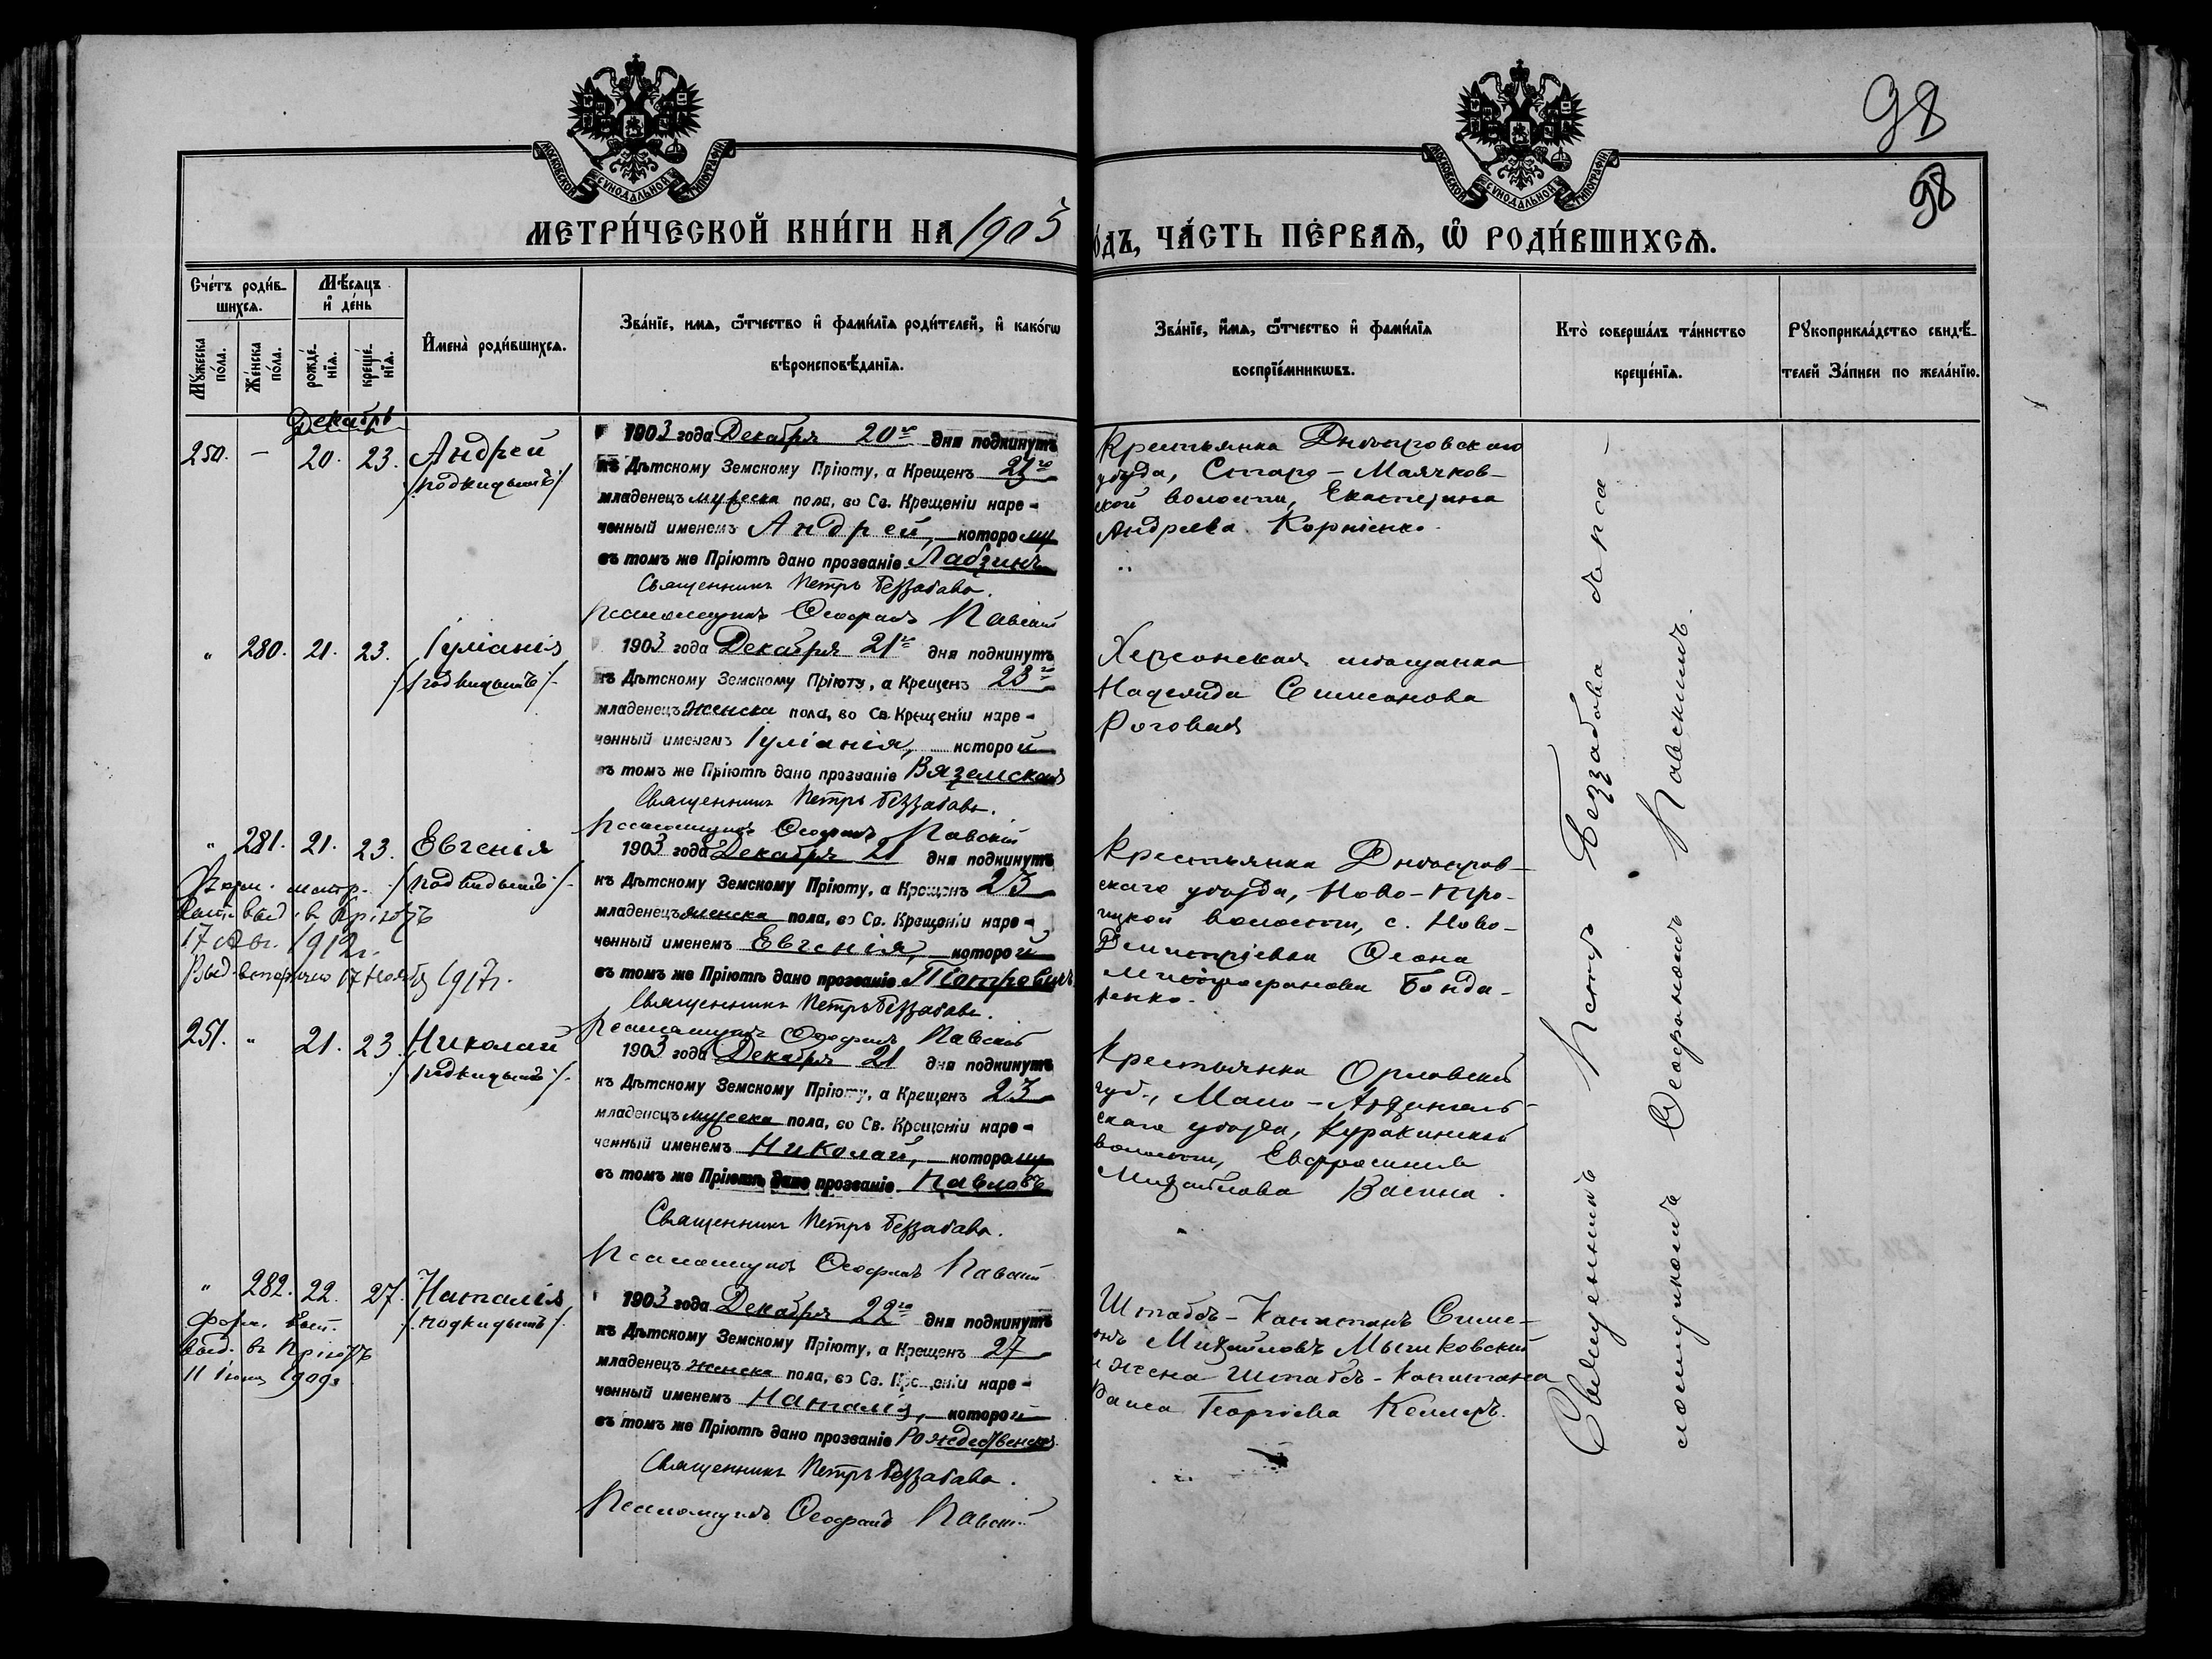 98
98
МОСКОВСКОЙ СѴНОДАЛЬНОЙ ТИПОГРАФІИ
МОСКОВСКОЙ СѴНОДАЛЬНОЙ ТИПОГРАФІИ
МЕТРИ́ЧЕСКОЙ КНИ́ГИ НА 1903
ОДЪ, ЧА́СТЬ ПЕ́РВАѦ, Ѡ РОДИ́ВШИХСѦ.
Сче́тъ роди́вшихсѧ.
Мꙋ́жеска по́ла.
Же́нска по́ла.
Мѣ́сѧцъ и҆ де́нь
рожде́нїѧ.
креще́нїѧ.
И҆мена̀ роди́вшихсѧ.
Зва́нїе, и҆мѧ, ѻ҆́тчество и҆ фами́лїѧ роди́телей, и҆ како́гѡ
вѣроисповѣ́данїѧ.
Зва́нїе, и҆́мѧ, ѻ҆́тчество и҆ фами́лїѧ
воспрїе́мникѡвъ.
Кто̀ соверша́лъ та́инство
креще́нїѧ.
Рꙋкоприкла́дство свидѣ́-
телей За́писи по жела́нїю.
Декабрь
250. — 20. 23. Андрей
/подкидышъ/
1903 года Декабря 20го дня подкинутъ
къ Дѣтскому Земскому Пріюту, а Крещенъ 23го
младенецъ мужеска пола, во Св. Крещеніи наре-
ченный именемъ Андрей, которому
въ томъ же Пріютѣ дано прозваніе Лабзинъ
Священникъ Петръ Беззабава.
Псаломщикъ Ѳеофанъ Павскій
Крестьянка Днѣпровскаго
уѣзда, Старо-Маячков-
ской волости, Екатерина
Андреева Корніенко.
" 280. 21. 23. Іуліанія
/подкидышъ/.
1903 года Декабря 21го дня подкинутъ
къ Дѣтскому Земскому Пріюту, а Крещенъ 23го
младенецъ женска пола, во Св. Крещеніи наре-
ченный именемъ Іуліанія, которой
въ томъ же Пріютѣ дано прозваніе Вяземская
Священникъ Петръ Беззабава.
Псаломщикъ Ѳеофанъ Павскій
Херсонская мѣщанка
Надежда Симеонова
Роговая
" 281. 21. 23. Евгенія
/подкидышъ/.
Форм. метр.
выд. въ Пріютъ
17 Авг. 1912 г.
Выд. вторично 17 Нояб 1917 г.
1903 года Декабря 21 дня подкинутъ
къ Дѣтскому Земскому Пріюту, а Крещенъ 23
младенецъ женска пола, во Св. Крещеніи наре-
ченный именемъ Евгенія, которой
въ томъ же Пріютѣ дано прозваніе
Священникъ Петръ Беззабава.
Псаломщикъ Ѳеофанъ Павскій
Крестьянка Днѣпров-
скаго уѣзда, Ново-Тро-
ицкой волости, с. Ново-
Димитріевки
Митрофанова Бонда-
ренко.
251. " 21. 23. Николай
/подкидышъ/.
1903 года Декабря 21 дня подкинутъ
къ Дѣтскому Земскому Пріюту, а Крещенъ 23
младенецъ мужеска пола, во Св. Крещеніи наре-
ченный именемъ Николай, которому
въ томъ же Пріютѣ дано прозваніе Павловъ
Священникъ Петръ Беззабава.
Псаломщикъ Ѳеофанъ Павскій
Крестьянка Орловской
губ., Мало-Архангель-
скаго уѣзда, Куракинской
волости, Евфросинія
Михайлова Васина.
" 282. 22. 27. Наталія
/подкидышъ/.
Форм.
выд. въ Пріютъ
11 Іюня 1909 г.
1903 года Декабря 22го дня подкинутъ
къ Дѣтскому Земскому Пріюту, а Крещенъ 27
младенецъ женска пола, во Св. Крещеніи наре-
ченный именемъ Наталія, которой
въ томъ же Пріютѣ дано прозваніе Рождественская
Священникъ Петръ Беззабава.
Псаломщикъ Ѳеофанъ Павскій
Штабсъ-Капитанъ Симе-
онъ Михайловъ
и жена Штабсъ-Капитана
Раиса Георгіева Келлеръ.
Священникъ Петръ Беззабава съ пса-
ломщикомъ Ѳеофаномъ Павскимъ.